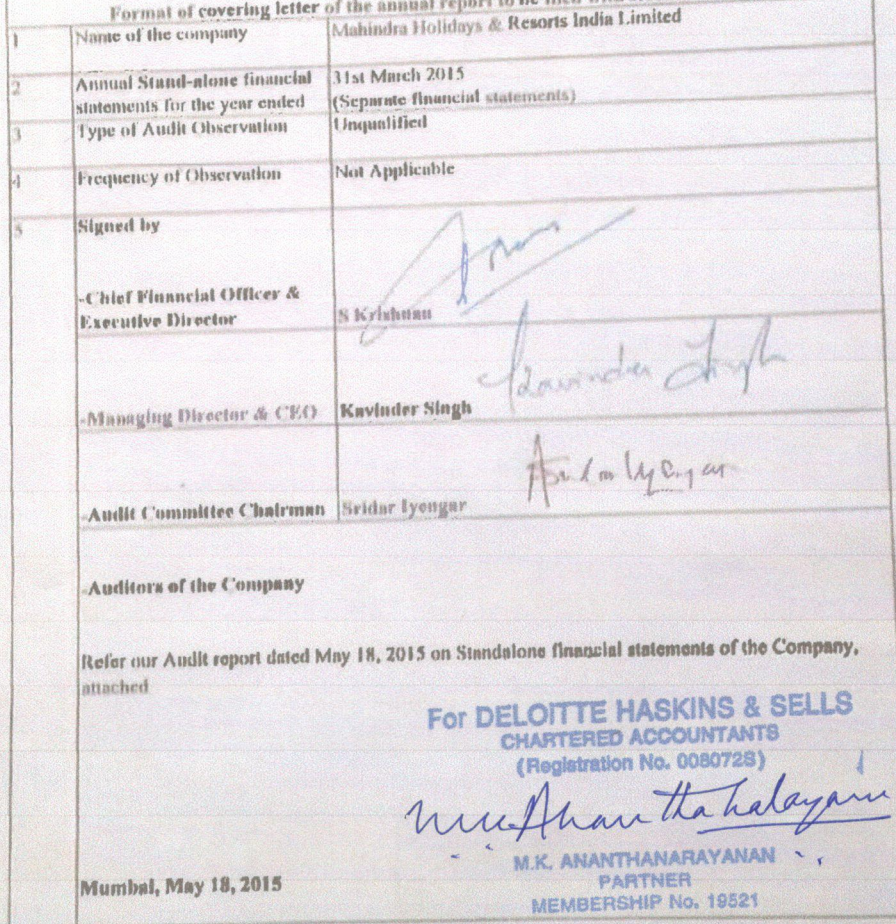 Format of covering letter of the annual report to be filed
1 Name of the company Mahindra Holidays & Resorts India Limited
2 Annual Stand-alone financial statements for the year ended 31st March 2015
(Separate financial statements)
3 Type of Audit Observation Unqualified
4 Frequency of Observation Not Applicable
5 Signed by
-Chief Financial Officer &
Executive Director S Krishnan
Kavinder Singh
-Managing Director & CEO Kavinder Singh
-Audit Committee Chairman Sridar Iyengar
-Auditors of the Company
Refer our Audit report dated May 18, 2015 on Standalone financial statements of the Company,
attached
For DELOITTE HASKINS & SELLS
CHARTERED ACCOUNTANTS
(Registration No. 008072S)
M.K. ANANTHANARAYANAN
PARTNER
MEMBERSHIP No. 19521
Mumbai, May 18, 2015